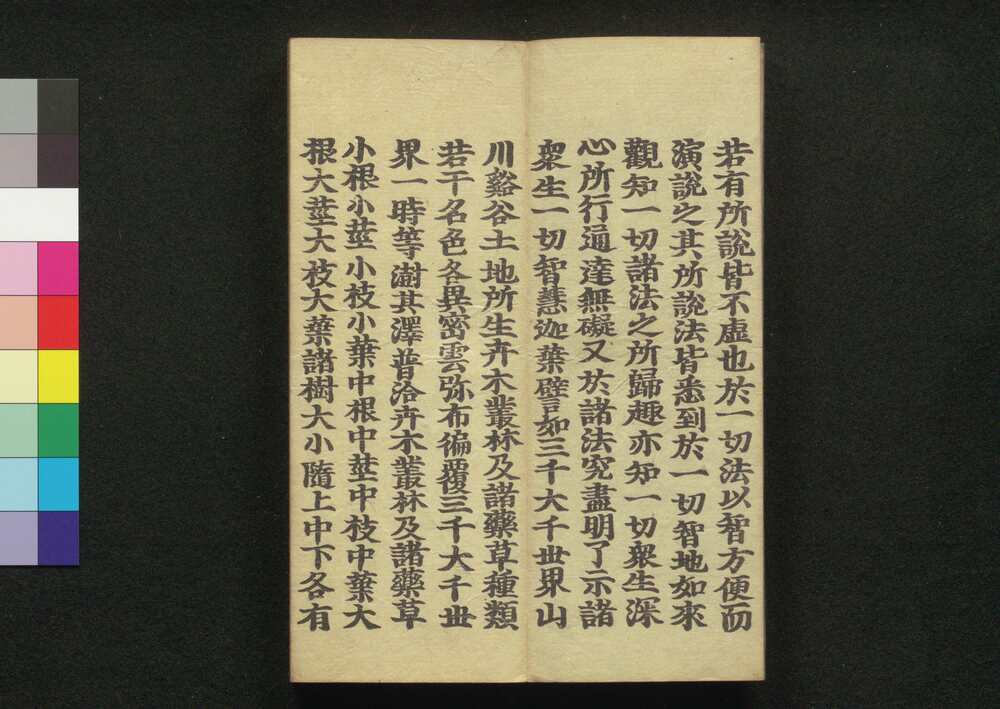 若有所說皆不虛也於一切法以智方便而
演說之其所說法皆悉到於一切智地如來
觀知一切諸法之所歸趣亦知一切衆生深
心所行通達無礙又於諸法究盡明了示諸
衆生一切智慧迦葉譬如三千大千世界山
川谿谷土地所生卉木叢林及諸藥草種類
若干名色各異密雲弥布徧覆三千大千世
界一時等澍其澤普洽卉木叢林及諸藥草
小根小莖小枝小葉中根中莖中枝中葉大
根大莖大枝大葉諸樹大小隨上中下各有